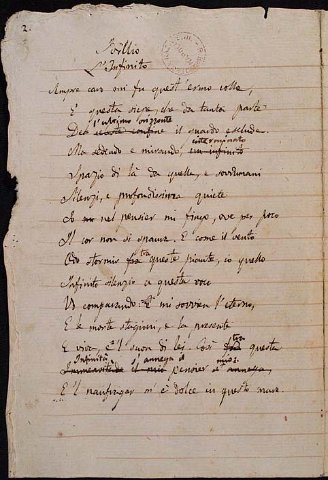 2.
Idillio
L'Infinito
Sempre caro mi fu quest'ermo colle,
E questa siepe, che da tanta parte
l'ultimo orizzonte
De celeste confine il guardo esclude.
interminato
Ma sedendo e mirando, un infinito
Spazio di là da quella, e sovrumani
Silenzi, e profondissima quiete
Io nel pensier mi fingo, ove per poco
Il cor non si spaura. E come il vento
tra
Odo stormir fra queste piante, io quello
Infinito silenzio a questa voce
Vo comparando. E mi sovvien l'eterno,
E le morte stagioni, e la presente
tra
E viva, e 'l suon di lei. Così fra questa
Infinità s'annega il mio
Immensità il mio pensier s'annega,
E 'l naufragar m'è dolce in questo mare.